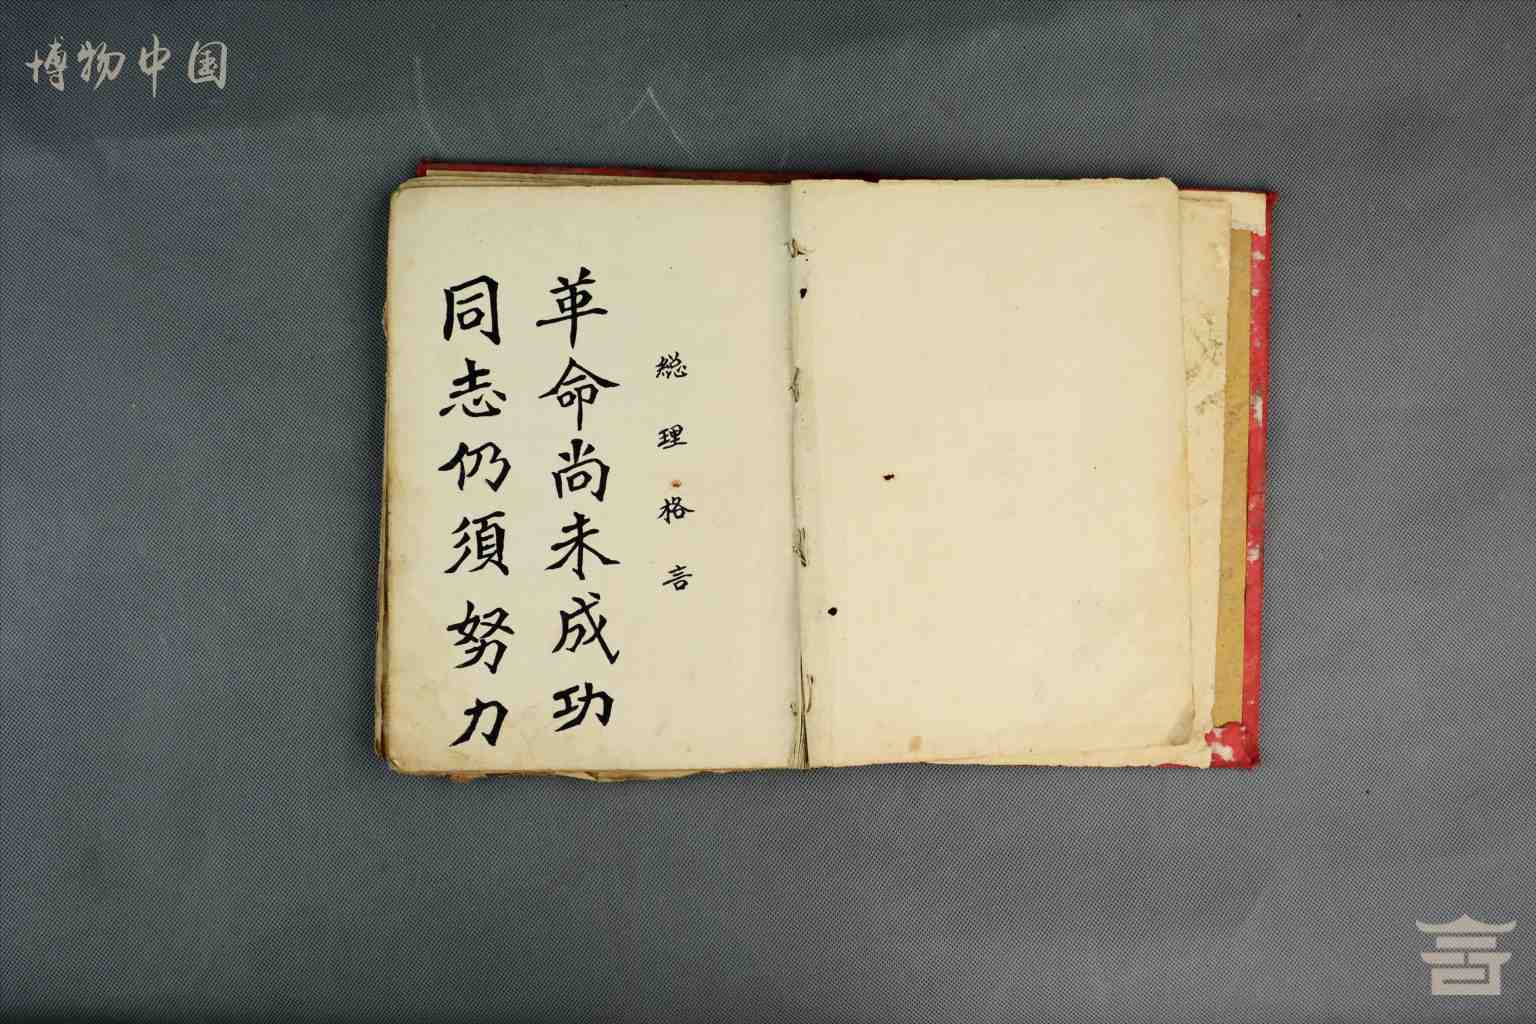 博物中国
總理格言
革命尚未成功
同志仍須努力